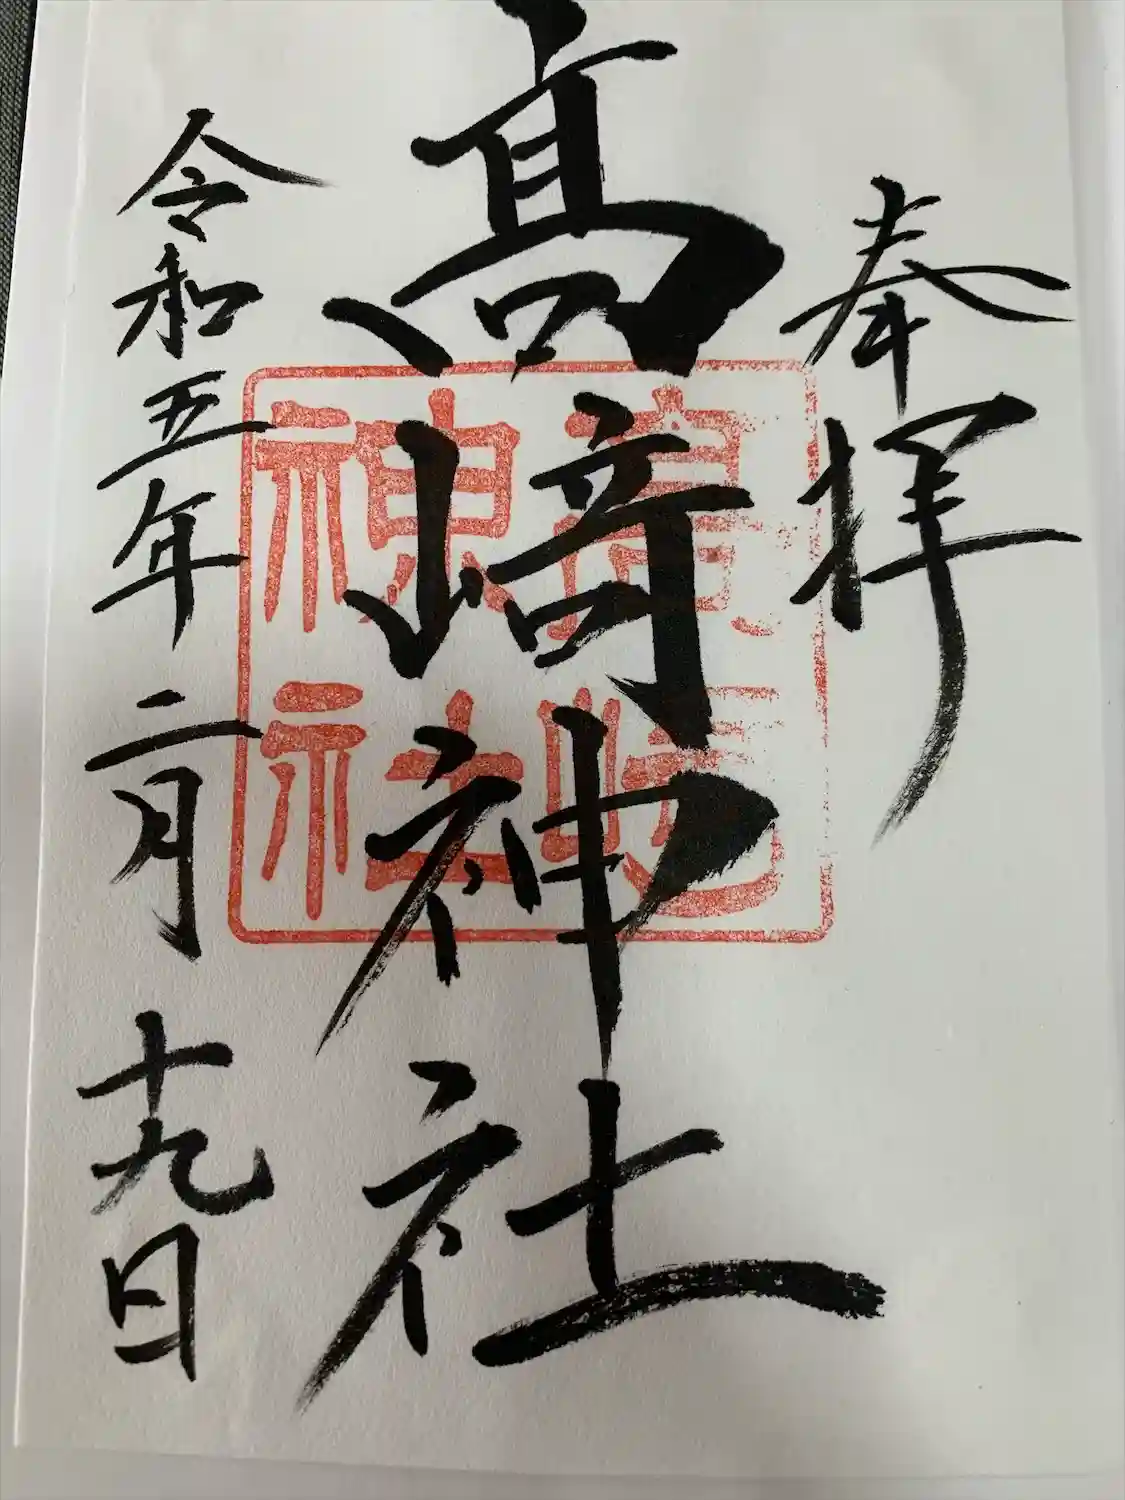 奉拝
髙﨑神社
高崎神社
令和五年二月十九日